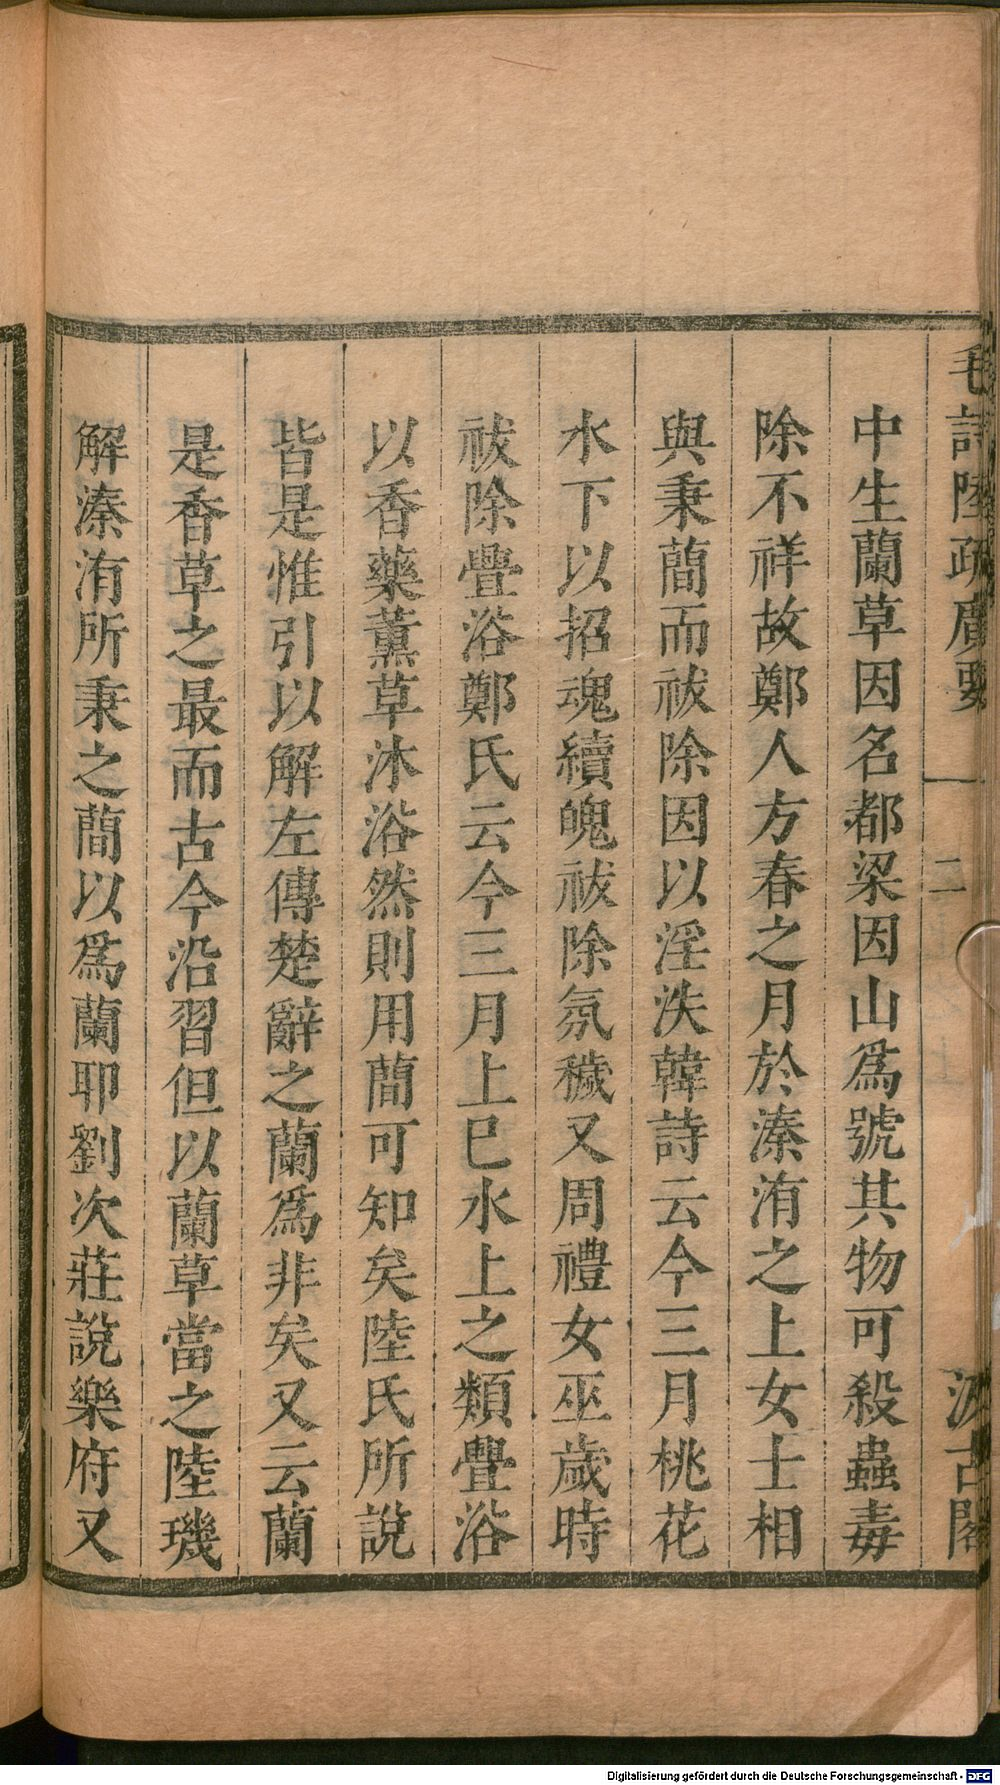 毛詩陸疏廣要 二 汲古閣
中生蘭草因名都梁因山爲號其物可殺蟲毒
除不祥故鄭人方春之月於溱洧之上女士相
與秉蕳而祓除因以淫泆韓詩云今三月桃花
水下以招魂續魄祓除氛穢又周禮女巫歲時
祓除疊浴鄭氏云今三月上巳水上之類疊浴
以香藥薰草沐浴然則用蕳可知矣陸氏所說
皆是惟引以解左傳楚辭之蘭爲非矣又云蘭
是香草之最而古今沿習但以蘭草當之陸璣
解溱洧所秉之蕳以爲蘭耶劉次莊說樂府又
Digitalisierung gefördert durch die Deutsche Forschungsgemeinschaft - DFG